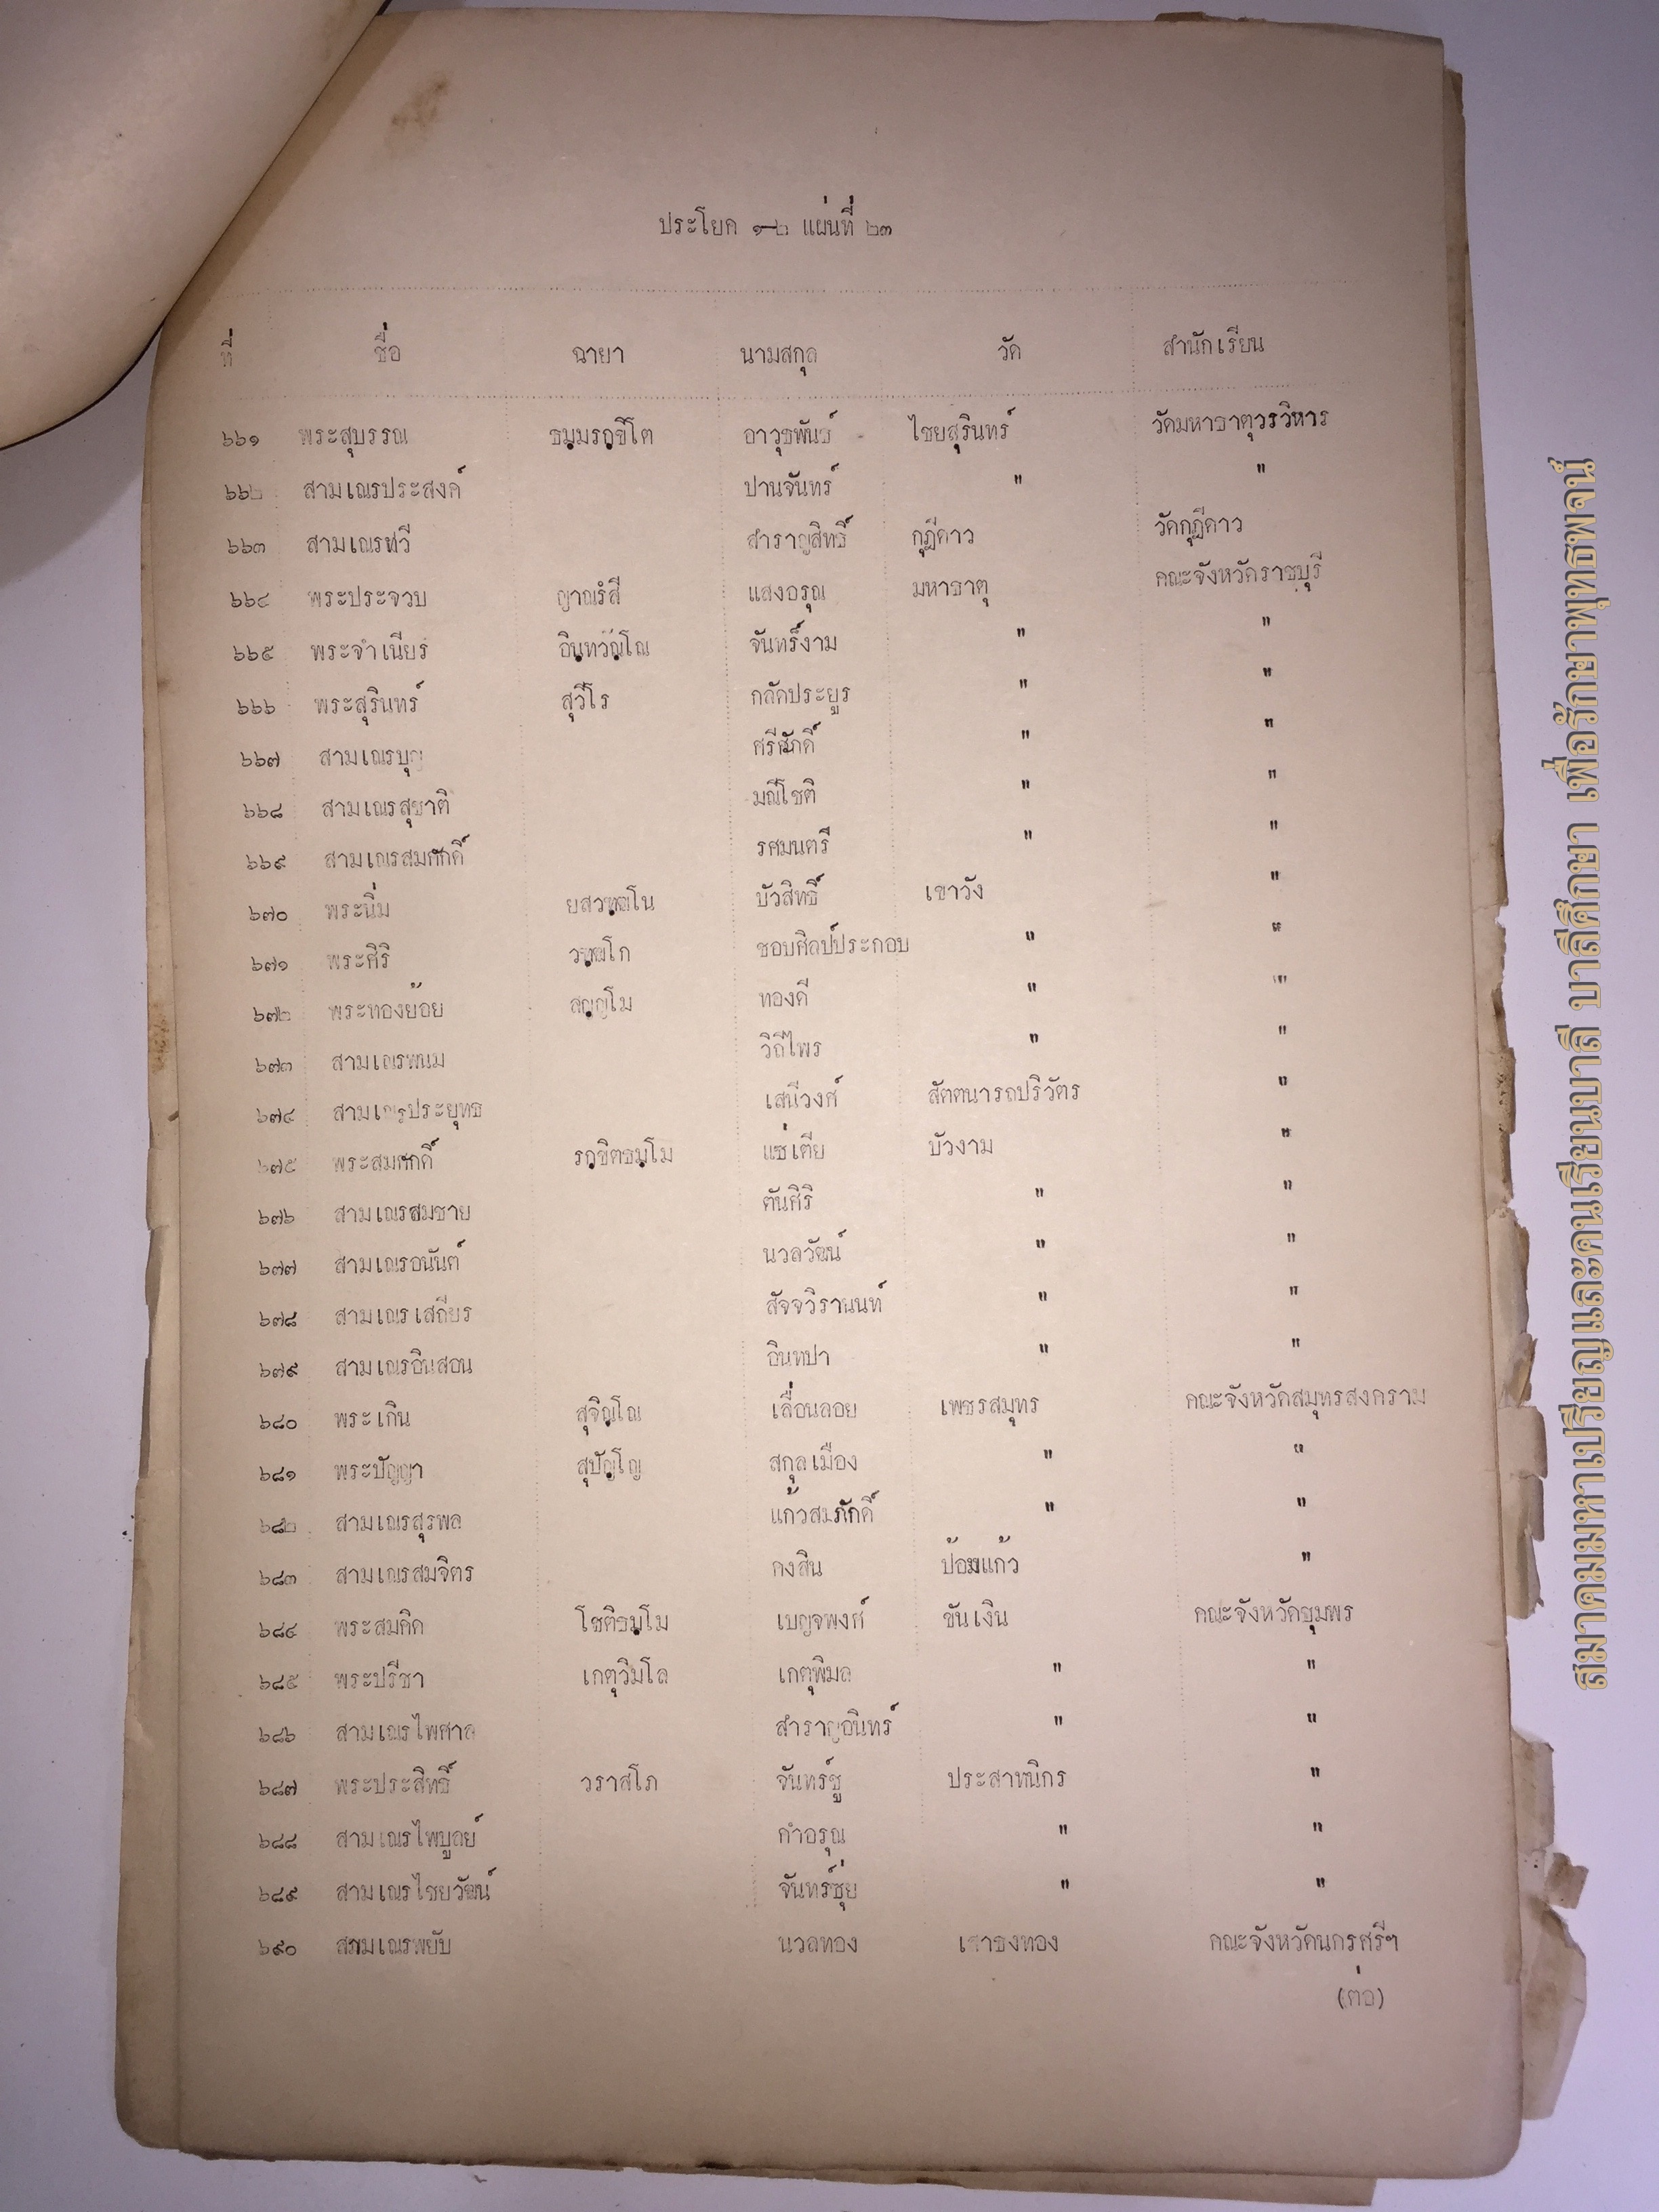 ประโยค ๑-๒ แผ่นที่ ๒๓
ที่ ชื่อ ฉายา นามสกุล วัด สำนักเรียน
๖๖๑ พระสุบรรณ ธมฺมรกฺขิโต อาวุธพันธ์ - ไชยสุรินทร์ วัดมหาธาตุวรวิหาร
๖๖๒ สามเณรประสงค์ ปานจันทร์ " "
๖๖๓ สามเณรทวี สำราญสิทธิ์ กุฎีดาว วัดกุฎีดาว
๖๖๔ พระประจวบ ญาณรํสี แสงอรุณ มหาธาตุ คณะจังหวัดราชบุรี
๖๖๕ พระจำเนียร อินฺทวณฺโณ จันทร์งาม " "
๖๖๖ พระสุรินทร์ สุวีโร กลัดประยูร " "
๖๖๗ สามเณรบุญ ศรีศักดิ์ " "
๖๖๘ สามเณรสุชาติ มณีโชติ " "
๖๖๙ สามเณรสมศักดิ์ รศมนตรี " "
๖๗๐ พระนิ่ม ยสวฑฺฒโน บัวสิทธิ์ เขาวัง "
๖๗๑ พระศิริ วฑฺฒโก ชอบศิลป์ประกอบ " "
๖๗๒ พระทองย้อย สญฺญโม ทองดี " "
๖๗๓ สามเณรพนม วิถีไพร " "
๖๗๔ สามเณรประยุทธ เสนีวงศ์ สัตตนารถปริวัตร "
๖๗๕ พระสมศักดิ์ รกฺขิตธมฺโม แซ่เตีย บัวงาม "
๖๗๖ สามเณรสมชาย ตันศิริ " "
๖๗๗ สามเณรอนันต์ นวลวัฒน์ " "
๖๗๘ สามเณรเสถียร สัจจวิรานนท์ " "
๖๗๙ สามเณรอินสอน อินทปา " "
๖๘๐ พระเกิน สุจิณฺโณ เลื่อนลอย เพชรสมุทร คณะจังหวัดสมุทรสงคราม
๖๘๑ พระปัญญา สุปัญฺโญ สกุลเมือง " "
๖๘๒ สามเณรสุรพล แก้วสมภักดิ์ " "
๖๘๓ สามเณรสมจิตร คงสิน ป้อมแก้ว "
๖๘๔ พระสมคิด โชติธมฺโม เบญจพงศ์ ขันเงิน คณะจังหวัดชุมพร
๖๘๕ พระปรีชา เกตุวิมโล เกตุพิมล " "
๖๘๖ สามเณรไพศาล สำราญอินทร์ " "
๖๘๗ พระประสิทธิ์ วราสโภ จันทร์ชู ประสาทนิกร "
๖๘๘ สามเณรไพบูลย์ คำอรุณ " "
๖๘๙ สามเณรไชยวัฒน์ จันทร์ชุ่ย " "
๖๙๐ สามเณรพยับ นวลทอง เสาธงทอง คณะจังหวัดนครศรีฯ
(ต่อ)
สมาคมมหาเปรียญและคนเรียนบาลี บาลีศึกษา เพื่อรักษาพุทธพจน์